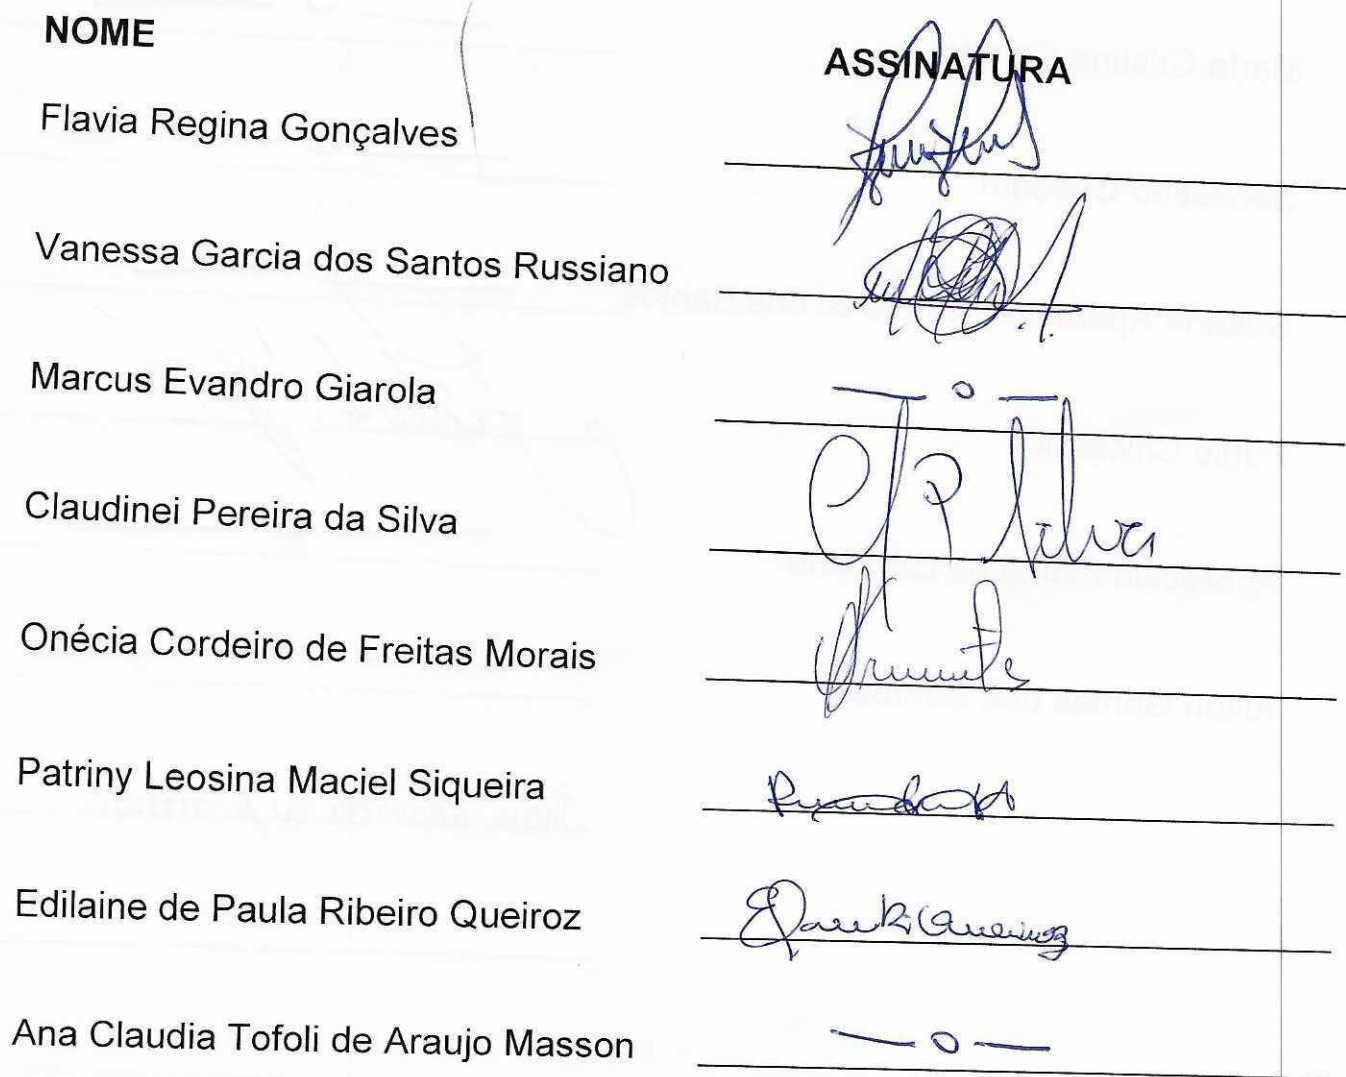 NOME
ASSINATURA
Flavia Regina Gonçalves
Vanessa Garcia dos Santos Russiano
Marcus Evandro Giarola
— o —
Claudinei Pereira da Silva
CP Silva
Onécia Cordeiro de Freitas Morais
Patriny Leosina Maciel Siqueira
Edilaine de Paula Ribeiro Queiroz
Ana Claudia Tofoli de Araujo Masson
— o —